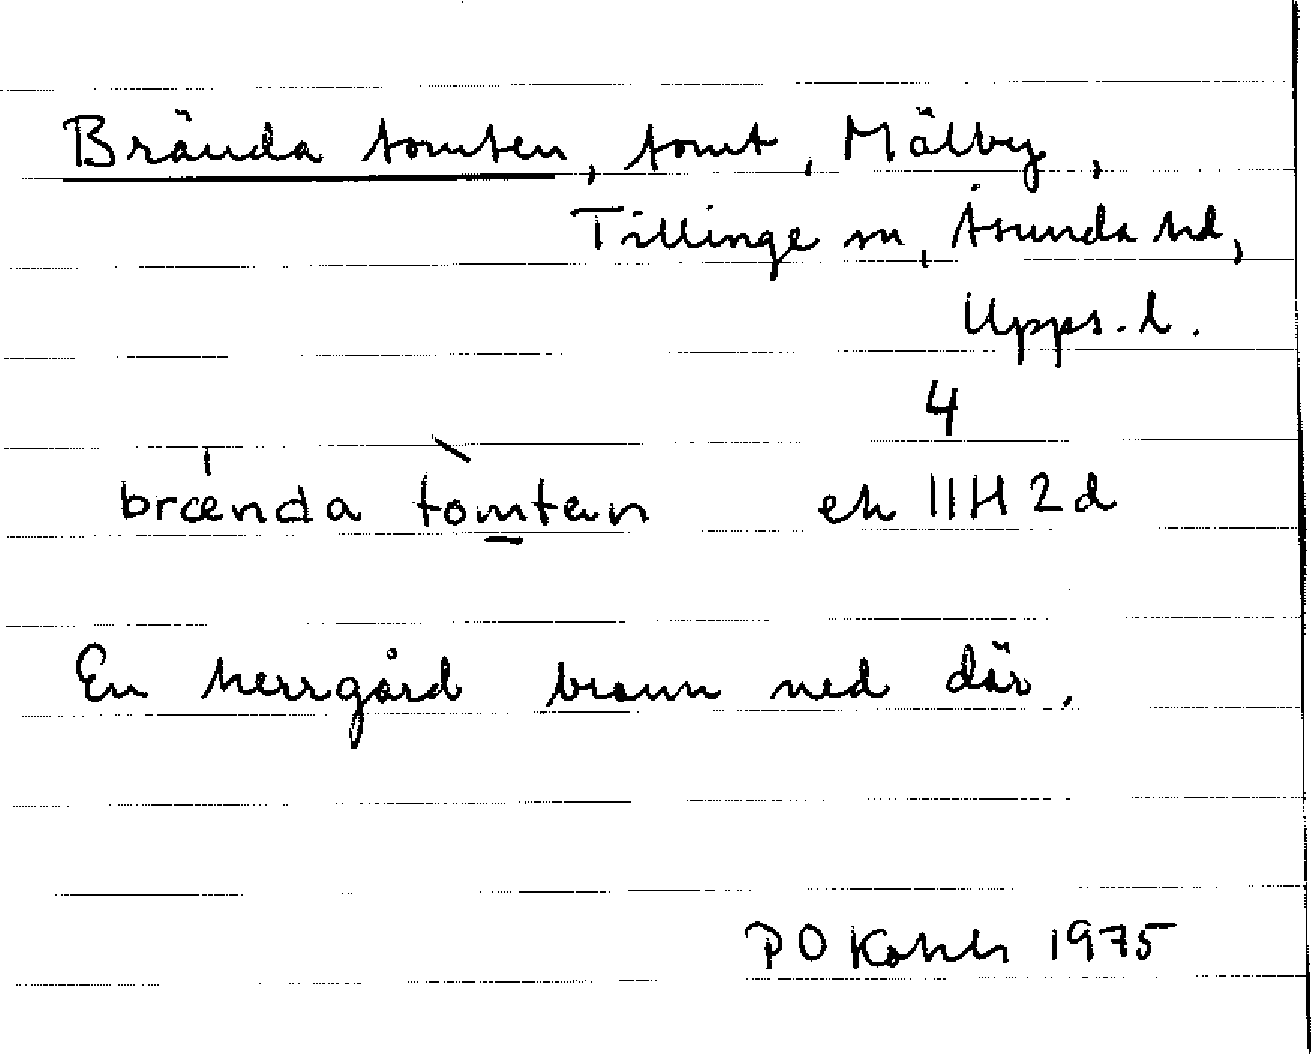 Brända tomten, tomt, Mälby,
Tillinge sn, Åsunda hd,
Upps. l.
4
brænda tomtæn ek 11H 2d
En herrgård brann ned där.
P O 1975